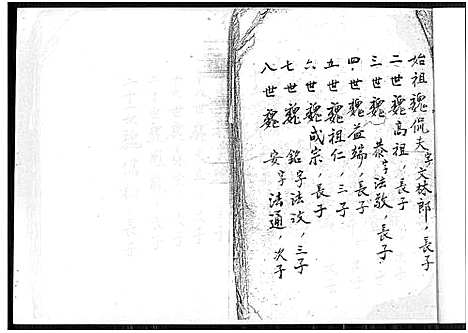 始祖魏侃夫字文林郎，長子
二世魏高祖，長子
三世魏 恭字法敬，長子
四世魏益端，長子
五世魏祖仁，三子
六世魏成宗，長子
七世魏 銘字法汶，三子
八世魏 安字法通，次子